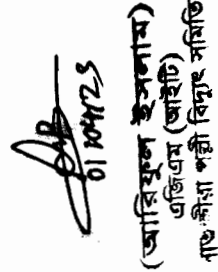 01/04/23
(আরিফুল ইসলাম)
এজিএম (আইটি)
সাতক্ষীরা পল্লী বিদ্যুৎ সমিতি